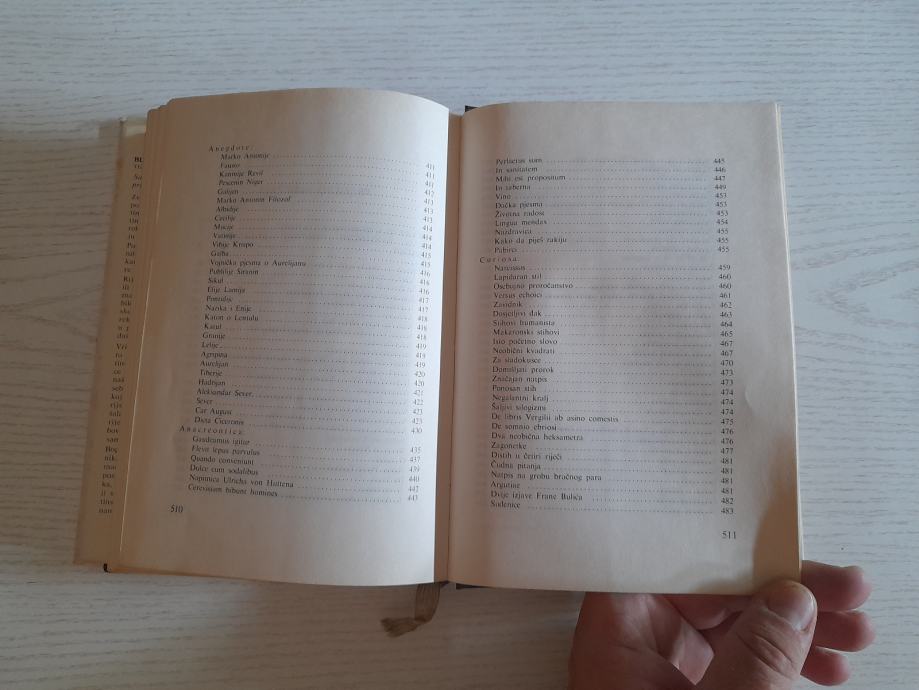 Anegdote:
Marko Antonije
Fauno 411
Kaninije Revil 411
Pescenin Niger 411
Galijen 412
Marko Antonin Filozof 413
Albidije 413
Cecilije 413
Mucije 414
Vatinije 414
Vibije Krispo 414
Galba 415
Vojnička pjesma o Aurelijanu 415
Publilije Siranin 416
Sikul 416
Elije Lamija 416
Pontidije 417
Nazika i Enije 417
Katon o Lentulu 418
Katul 418
Granije 418
Lelije 419
Agripina 419
Aurelijan 419
Tiberije 420
Hadrijan 420
Aleksandar Sever 421
Sever 422
Car August 423
Dieta Ciceronis 423
Anacreontica: 430
Gaudeamus igitur
Flevit lepus parvulus 435
Quando conveniunt 437
Dulce cum sodalibus 439
Napitnica Ulricha von Huttena 440
Cerevisiam bibunt homines 447
443
510
Perlaetus sum 445
In sanitatem 446
Mihi est propositum 447
In taberna 449
Vino 453
Đačka pjesma 453
Životna radost 453
Lingua mendax 454
Nazdravica 455
Kako da piješ rakiju 455
Pabirci 455
Curiosa
Narcissus 459
Lapidaran stil 460
Osebujno proročanstvo 460
Versus echoici 461
Zavidnik 462
Dosjetljivi đak 463
Stihovi humanista 464
Makaronski stihovi 465
Isto početno slovo 467
Neobični kvadrati 467
Za sladokusce 470
Domišljati prorok 473
Značajan natpis 473
Ponosan stih 474
Negalantni kralj 474
Šaljivi silogizmi 474
De libris Vergilii ab asino comestis 475
De somnio ebriosi 476
Dva neobična heksametra 476
Zagonetke 477
Distih u četiri riječi 481
Čudna pitanja 481
Natpis na grobu bračnog para 481
Argutiae 481
Dvije izjave Frane Bulića 482
Suđenice 483
511